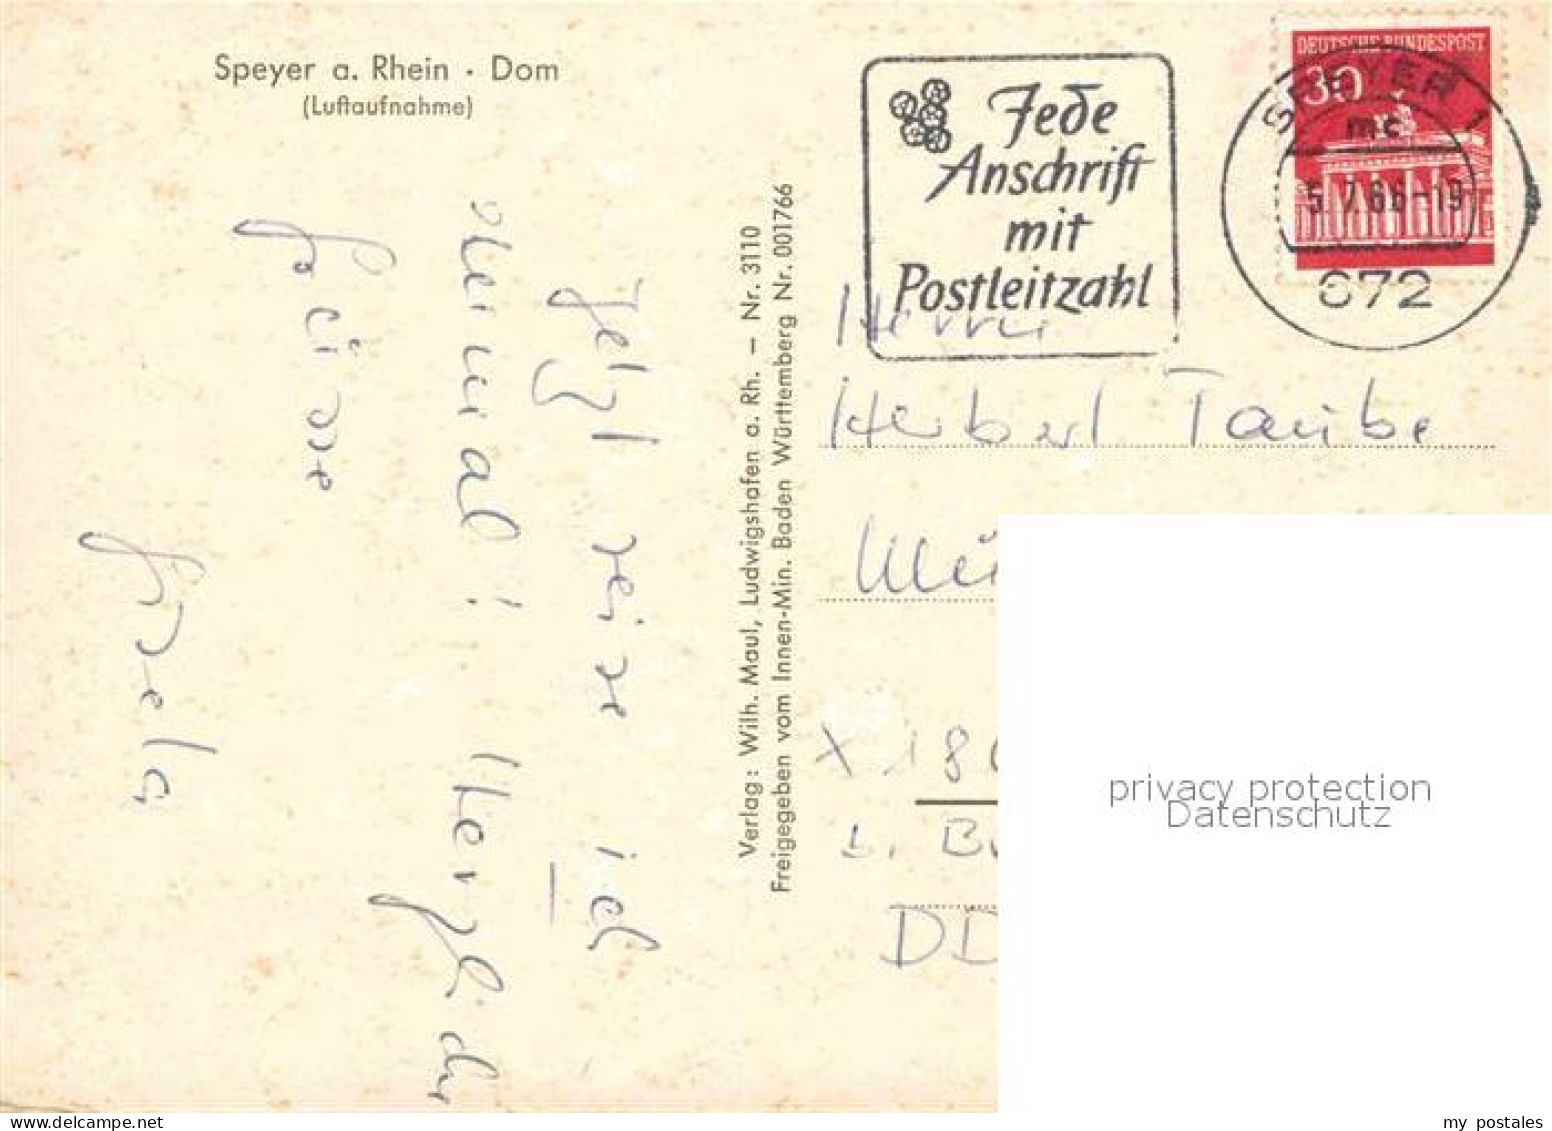 Speyer a. Rhein · Dom
(Luftaufnahme)
Jetzt reise ich
mal! Herzliche
Grüsse
Gisela
Verlag: Wilh. Maul, Ludwigshafen a. Rh. – Nr. 3110
Freigegeben vom Innen-Min. Baden Württemberg Nr. 001766
Jede
Anschrift
mit
Postleitzahl
DEUTSCHE BUNDESPOST
30
SPEYER 1
mc
5.7.66-19
672
Herrn
Herbert Taube
X 18
DD
privacy protection
Datenschutz
my postales